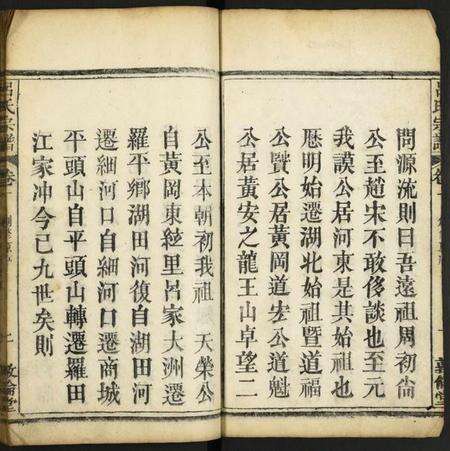 呂氏宗譜 卷
問源流則曰吾遠祖周初尙
公至趙宋不敢侈談也至元
我謨公居河東是其始祖也
歷明始遷湖北始祖暨道福
公贊公居黃岡道宏公道魁
公居黃安之龍王山卓望二
公至本朝初我祖 天榮公
自黃岡東絃里呂家大洲遷
羅平鄉湖田河復自湖田河
遷細河口自細河口遷商城
平頭山自平頭山轉遷羅田
江家冲今已九世矣則
呂氏宗譜 卷 敦倫堂